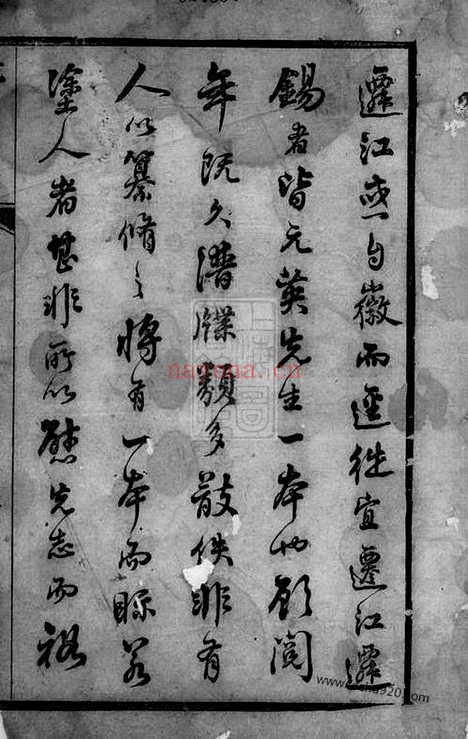 遷江或自徽而遷徙宜遷江遷
錫者皆元英先生一本也顧閱
年既久譜牒類多散佚非有
人以纂脩之將有一本而眎若
塗人者甚非所以慰先志而裕
nayona.cn